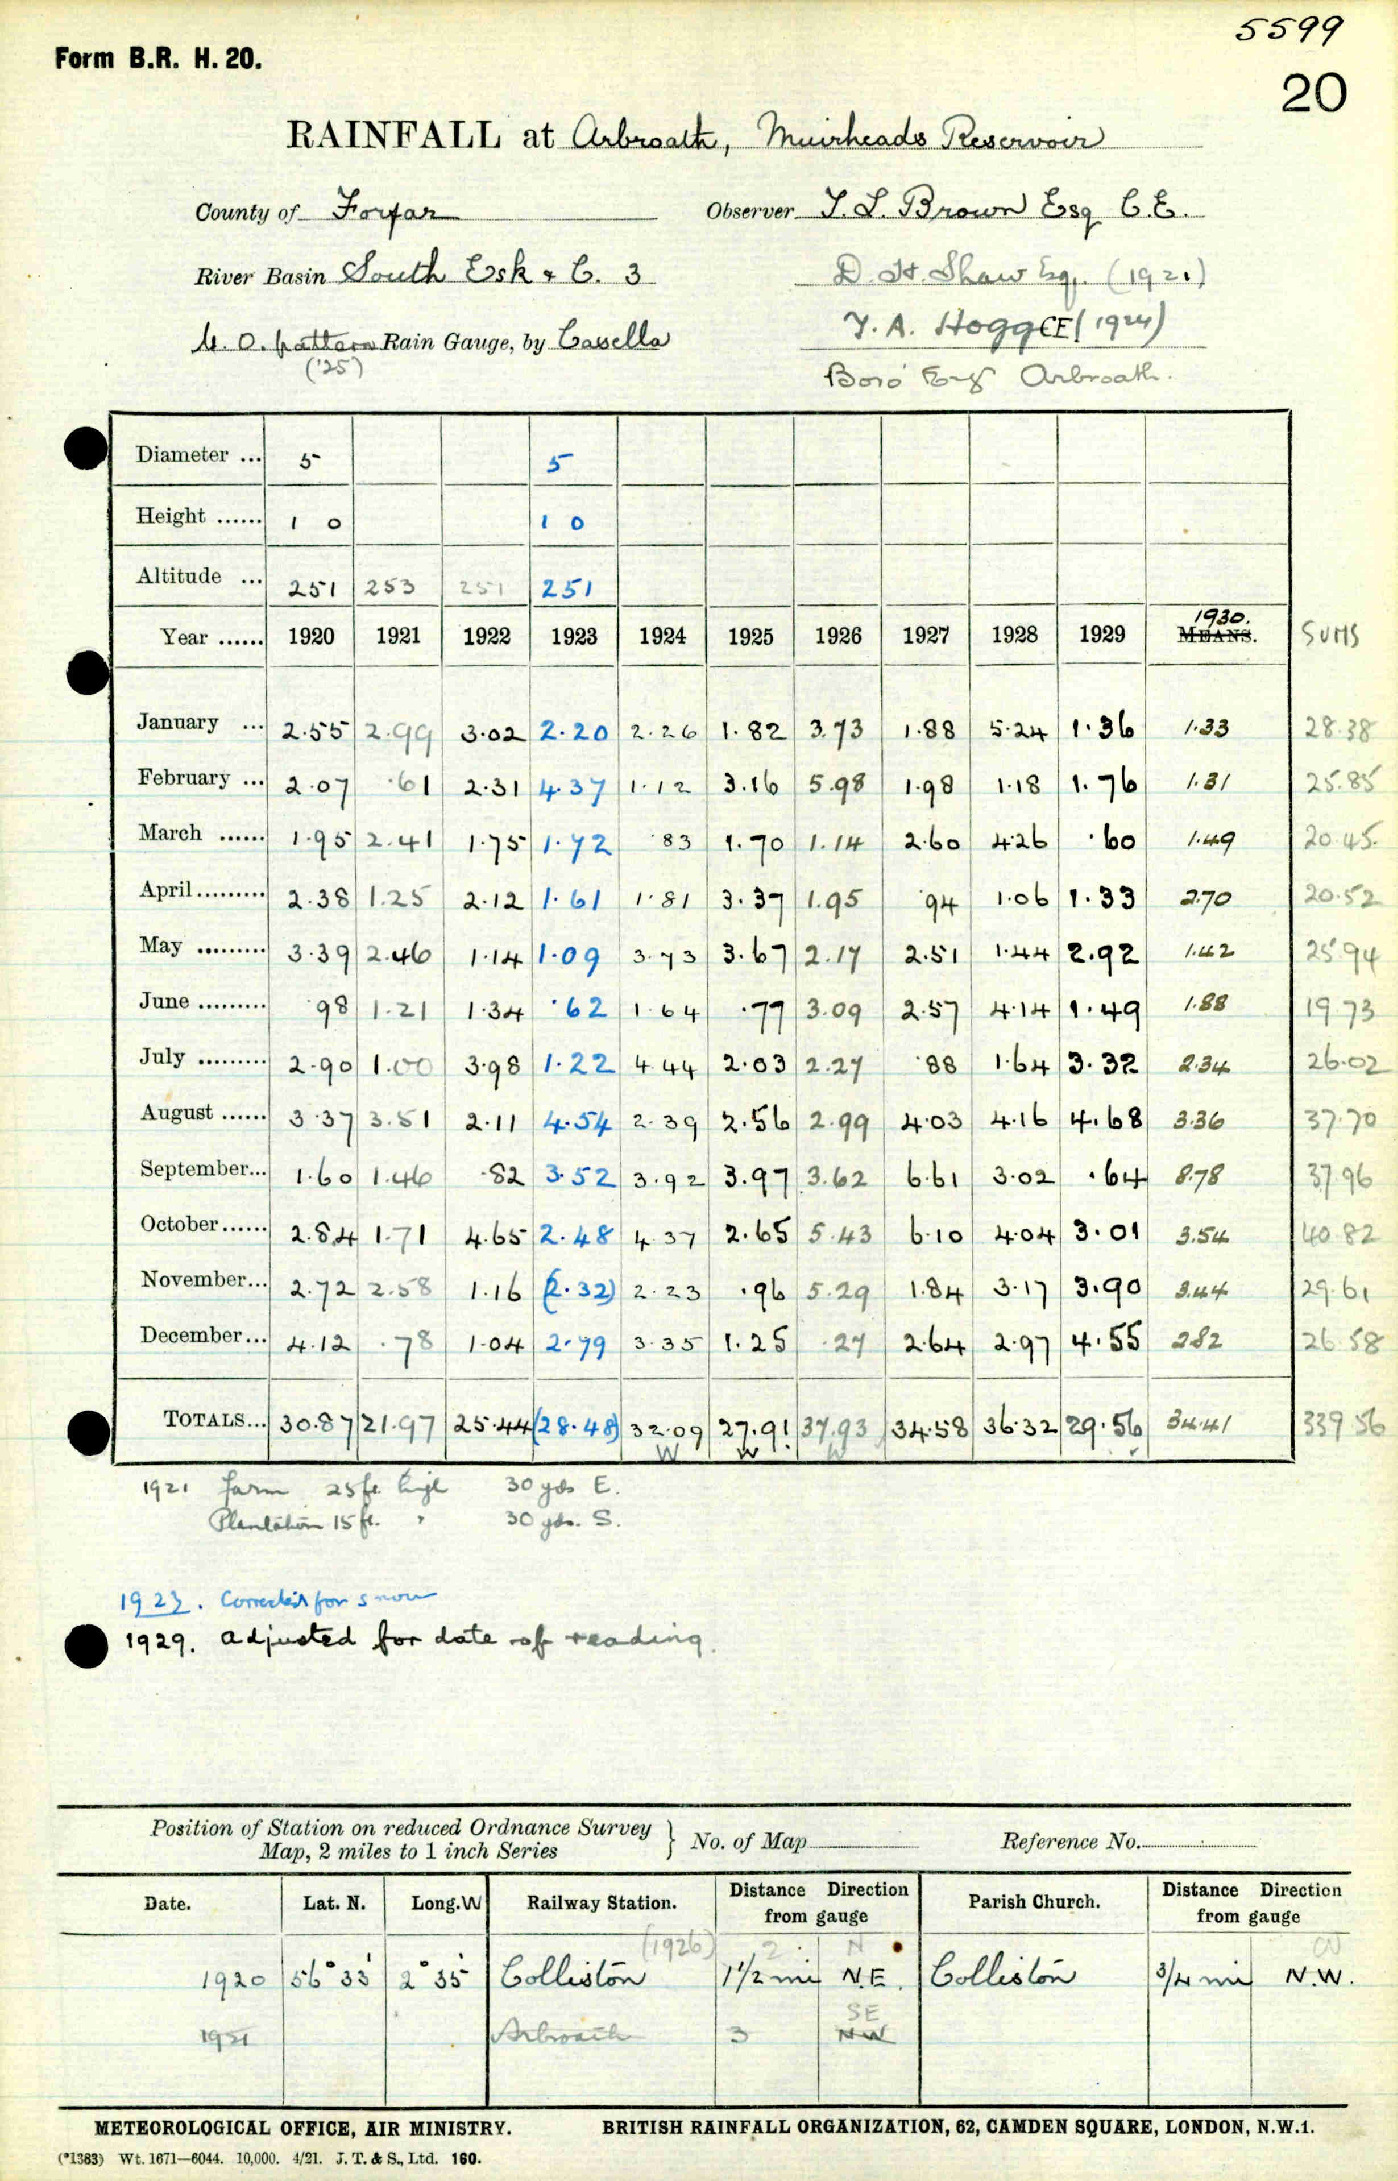 5599
Form B.R. H. 20.
20
RAINFALL at Arbroath, Muirheads Reservoir
County of Forfar Observer T. L. Brown Esq C.E.
River Basin South Esk & C. 3 D. H. Shaw Esq. (1921)
M. O. pattern Rain Gauge, by Casella T. A. Hogg CE (1924)
('25) Boro' Eng Arbroath.
Diameter ... 5 5
Height ...... 1 0 1 0
Altitude ... 251 253 251 251
Year ...... 1920 1921 1922 1923 1924 1925 1926 1927 1928 1929 1930. MEANS. SUMS
January ... 2.55 2.99 3.02 2.20 2.26 1.82 3.73 1.88 5.24 1.36 1.33 28.38
February ... 2.07 .61 2.31 4.37 1.12 3.16 5.98 1.98 1.18 1.76 1.31 25.85
March ...... 1.95 2.41 1.75 1.72 .83 1.70 1.14 2.60 4.26 .60 1.49 20.45
April......... 2.38 1.25 2.12 1.61 1.81 3.37 1.95 .94 1.06 1.33 2.70 20.52
May ......... 3.39 2.46 1.14 1.09 3.73 3.67 2.17 2.51 1.44 2.92 1.42 25.94
June ......... .98 1.21 1.34 .62 1.64 .77 3.09 2.57 4.14 1.49 1.88 19.73
July ......... 2.90 1.00 3.98 1.22 4.44 2.03 2.27 .88 1.64 3.32 2.34 26.02
August ...... 3.37 3.51 2.11 4.54 2.39 2.56 2.99 4.03 4.16 4.68 3.36 37.70
September... 1.60 1.46 .82 3.52 3.92 3.97 3.62 6.61 3.02 .64 8.78 37.96
October...... 2.84 1.71 4.65 2.48 4.37 2.65 5.43 6.10 4.04 3.01 3.54 40.82
November... 2.72 2.58 1.16 (2.32) 2.23 .96 5.29 1.84 3.17 3.90 3.44 29.61
December... 4.12 .78 1.04 2.79 3.35 1.25 .27 2.64 2.97 4.55 2.82 26.58
TOTALS... 30.87 21.97 25.44 (28.48) 32.09 27.91 37.93 34.58 36.32 29.56 34.41 339.56
W W W
1921 farm 25 ft. high 30 yds E.
Plantation 15 ft. " 30 yds. S.
1923. Corrected for snow
1929. adjusted for date of reading.
Position of Station on reduced Ordnance Survey
Map, 2 miles to 1 inch Series } No. of Map Reference No.
Date. Lat. N. Long. W Railway Station. Distance Direction from gauge Parish Church. Distance Direction from gauge
(1926) 2 N W
1920 56° 33' 2° 35' Colliston 1½ mi N.E. Colliston ¾ mi N.W.
SE
1921 Arbroath 3 NW
METEOROLOGICAL OFFICE, AIR MINISTRY. BRITISH RAINFALL ORGANIZATION, 62, CAMDEN SQUARE, LONDON, N.W.1.
(*1383) Wt. 1671—6044. 10,000. 4/21. J. T. & S., Ltd. 160.